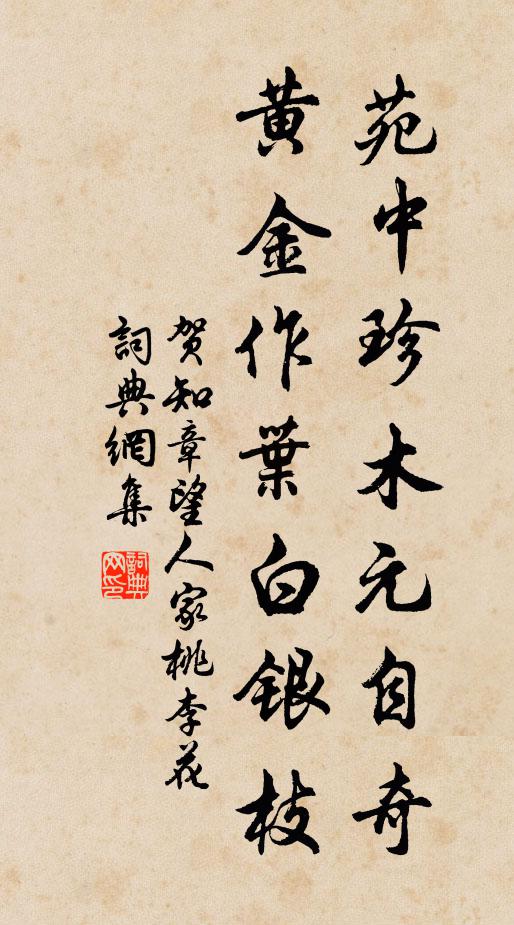 苑中珍木元自奇
黄金作葉白銀枝
贺知章望人家桃李花
詞典網集
詞典网印